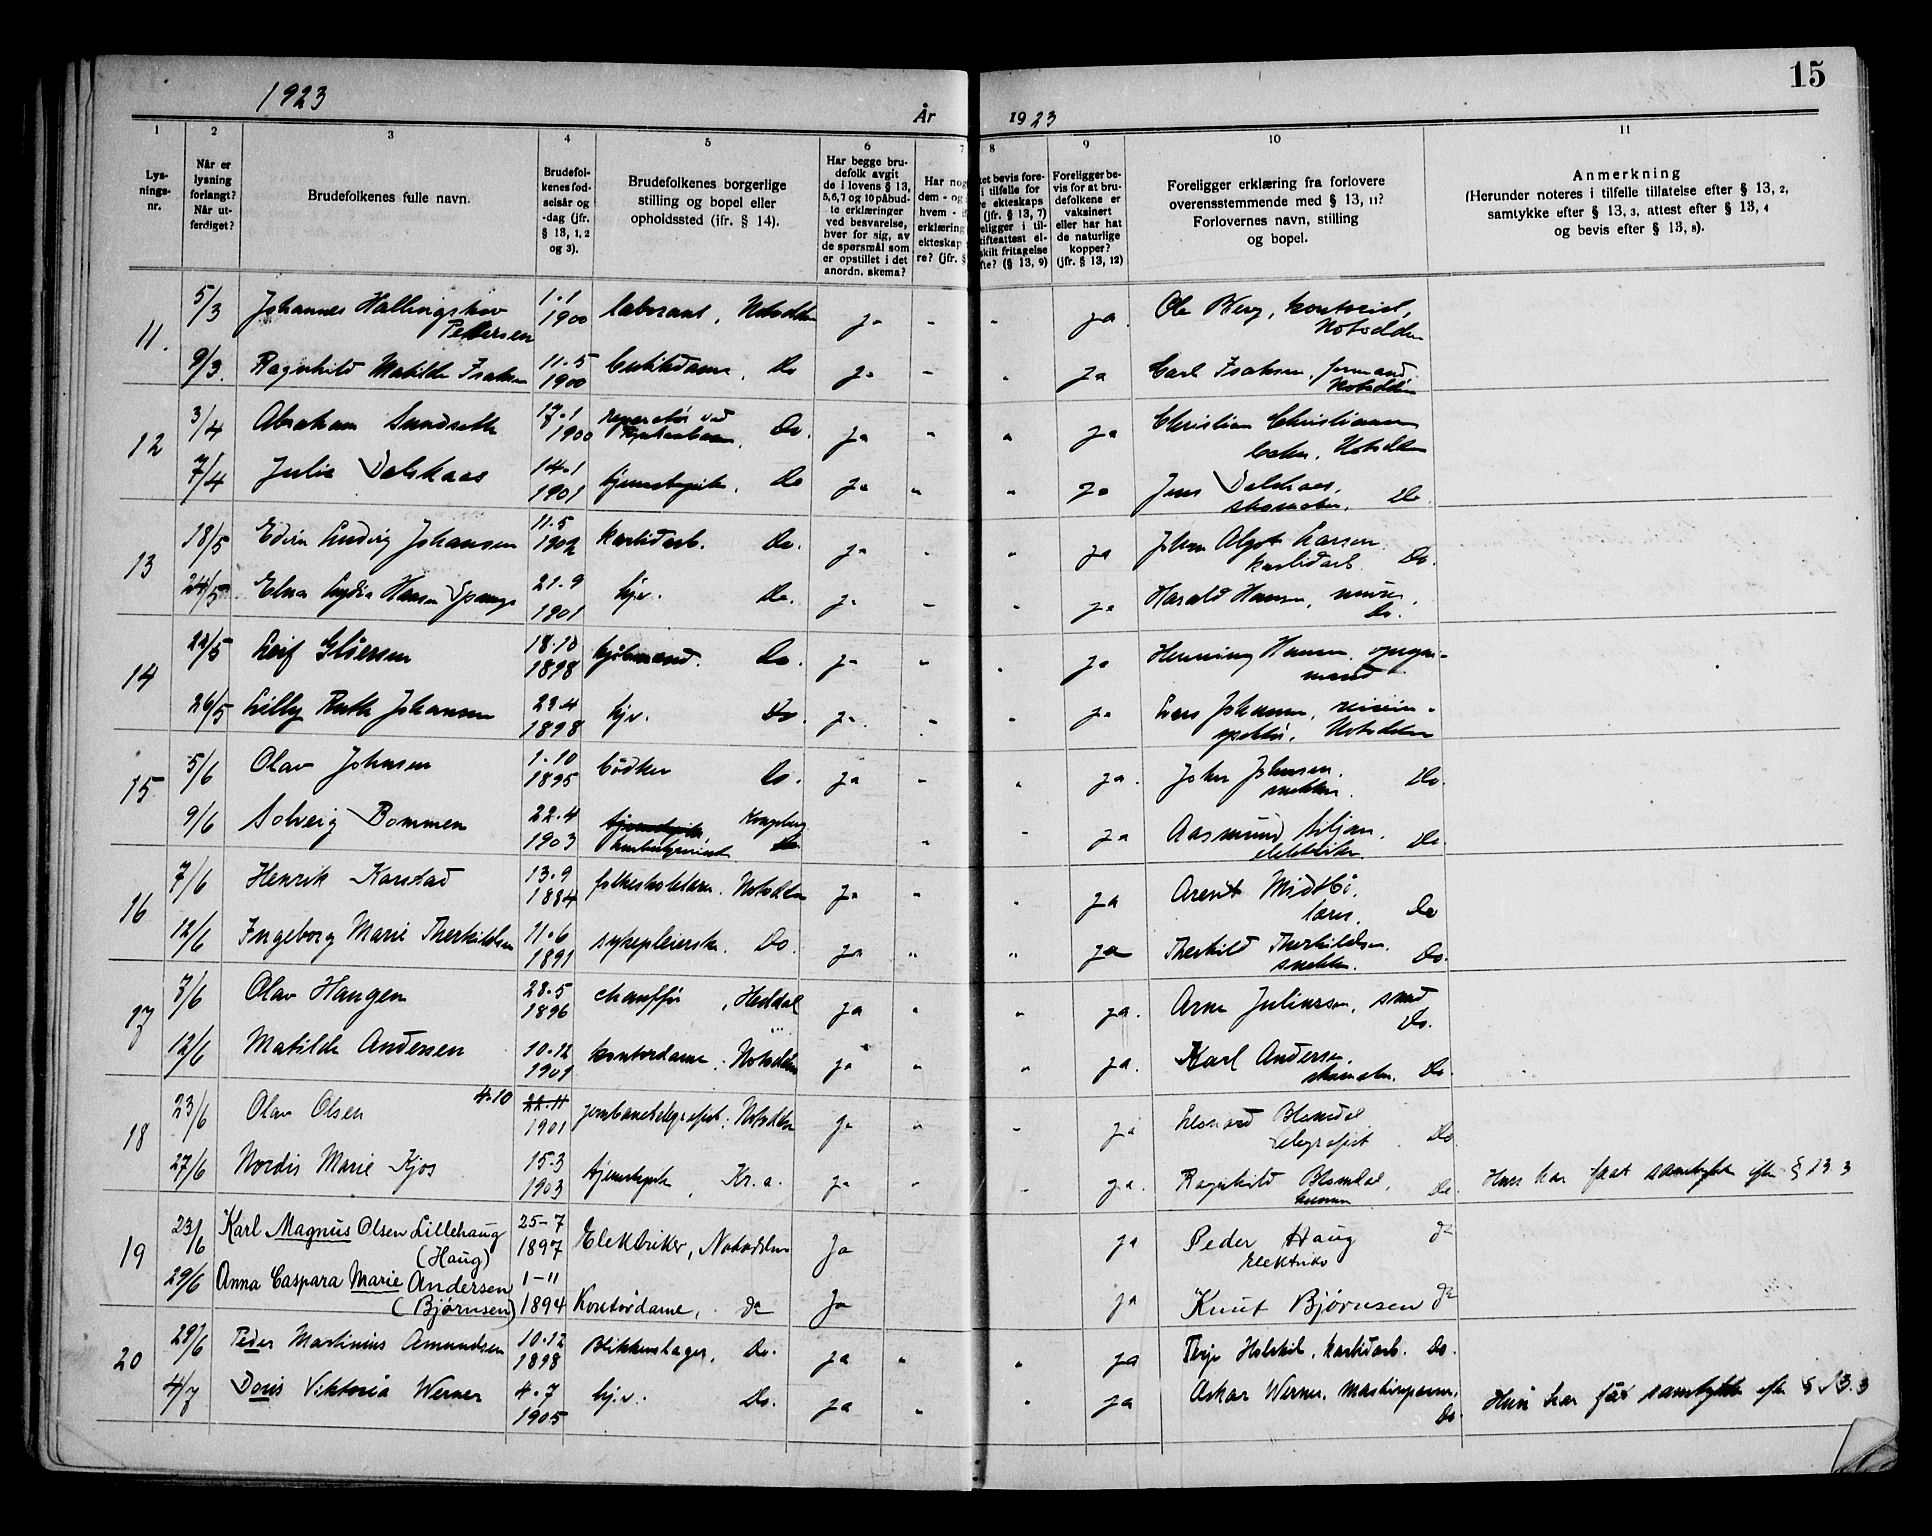 1923
År
1923
15
1
2
3
4
5
6
7
8
9
10
11
Lys-
nings-
nr.
Når er
lysning
forlangt?
Når ut-
ferdiget?
Brudefolkenes fulle navn.
Brudefol-
kenes fød-
selsår og
-dag (jfr.
§ 13, 1, 2
og 3).
Brudefolkenes borgerlige
stilling og bopel eller
opholdssted (jfr. § 14).
Har begge bru-
defolk avgit
de i lovens § 13,
5, 6, 7 og 10 påbud-
te erklæringer
ved besvarelse,
hver for sig, av
de spørsmål som
er opstillet i det
anordn. skema?
Har nog
dem - og
hvem - i
erklæring
ekteskap
re? (jfr. §
et bevis fore-
i tilfelle for
e ekteskaps
(jfr. § 13, 7)
eligger i til-
ifteattest el-
skilt fritagelse
fte? (§ 13, 9)
Foreligger be-
vis for at bru-
defolkene er
vaksinert
eller har hat
de naturlige
kopper?
(jfr. § 13, 12)
Foreligger erklæring fra forlovere
overensstemmende med § 13, 11?
Forlovernes navn, stilling
og bopel.
Anmerkning
(Herunder noteres i tilfelle tillatelse efter § 13, 2,
samtykke efter § 13, 3, attest efter § 13, 4
og bevis efter § 13, 8).
11. 5/3 Johannes Hallingskov Pettersen 1.1 1900 laborant, Notodden ja " " ja. Ole Berg, Notodden
9/3. Ragnhild Matilde Isaksen 11.5 1900 butikdame, Do ja " " ja Carl Isaksen, formand Notodden
12 3/4 Abraham Sundseth 17.1 1900 reparatør ved Do. ja " " ja Christian Christiansen baker, Notodden
7/4 Julie Dalskaas 14.1 1901 hjemmehjelp, Do ja " " ja Jens Dalskaas, skomaker, Do.
13 18/5 Edvin Ludvig Johansen 11.5 1902 karbidarb. Do. ja " " ja Johan Algot Larsen karbidarb. Do.
24/5 Elna Lydia Hansen Spange 21.9 1901 hj.v. Do. ja " " ja Harald Hansen, murer, Do.
14 22/5 Leif Gliersen 18.10 1898 Do. ja " " ja Henning Hansen,
26/5 Lilly Ruth Johansen 29.4 1898 hj.v. Do. ja. " " ja Lars Johansen, Notodden
15 5/6 Olav Johnsen 1.10 1895 bødker Do. ja " " ja. John Johnsen, snekker. Do.
9/6 Solveig Bommen 22.4 1903 Kongsberg " " ja Aasmund Siljan, elektriker. Do
16 7/6 Henrik Karstad 13.9 1884 folkeskolelærer. Notodden ja " " ja Arent Midtbø, lærer. Do
12/6 Ingeborg Marie Therkildsen 11.6 1891 sykepleierske. Do. ja " " ja Therkild Therkildsen snekker. Do.
17 7/6 Olav Haugen 28.5 1896 chauffør, Heddal ja " " ja. Arne Juliussen, smed Do.
12/6 Matilde Andersen 10.12 1901 kontordame. Notodden ja " " ja. Karl Andersen, skomaker. Do.
18 23/6 Olav Olsen 4.10 22.11 1901 jernbanetelegrafist. Notodden ja " " ja Leonard Blomdal telegrafist. Do.
27/6 Nordis Marie Kjos 15.3 1903 hjemmehjelp, Kr.a. ja " " ja. Ragnhild Blomdal, Do. Hun har faat samtykke efter § 13 3
19 23/6 Karl Magnus Olsen Lillehaug (Haug) 25-7 1897 Elektriker, Notodden Ja ja Peder Haug do elektriker
29/6 Anna Caspara Marie Andersen (Bjørnsen) 1-11 1894 Kontordame, do Ja ja Knut Bjørnsen do
20 29/6 Peder Martinius Amundsen 10.12 1898 Blikkenslager, Do. ja " " ja Terje Holskil, karbidarb. Do.
4/7 Doris Viktoria Werner 4.7 1905 hj.v. Do. ja " " ja Oskar Werner, maskinpasser, Do. Hun har fåt samtykke efter § 13. 3